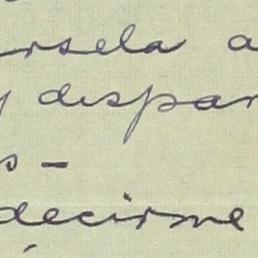 ersela a
y dispar
s -
decirme